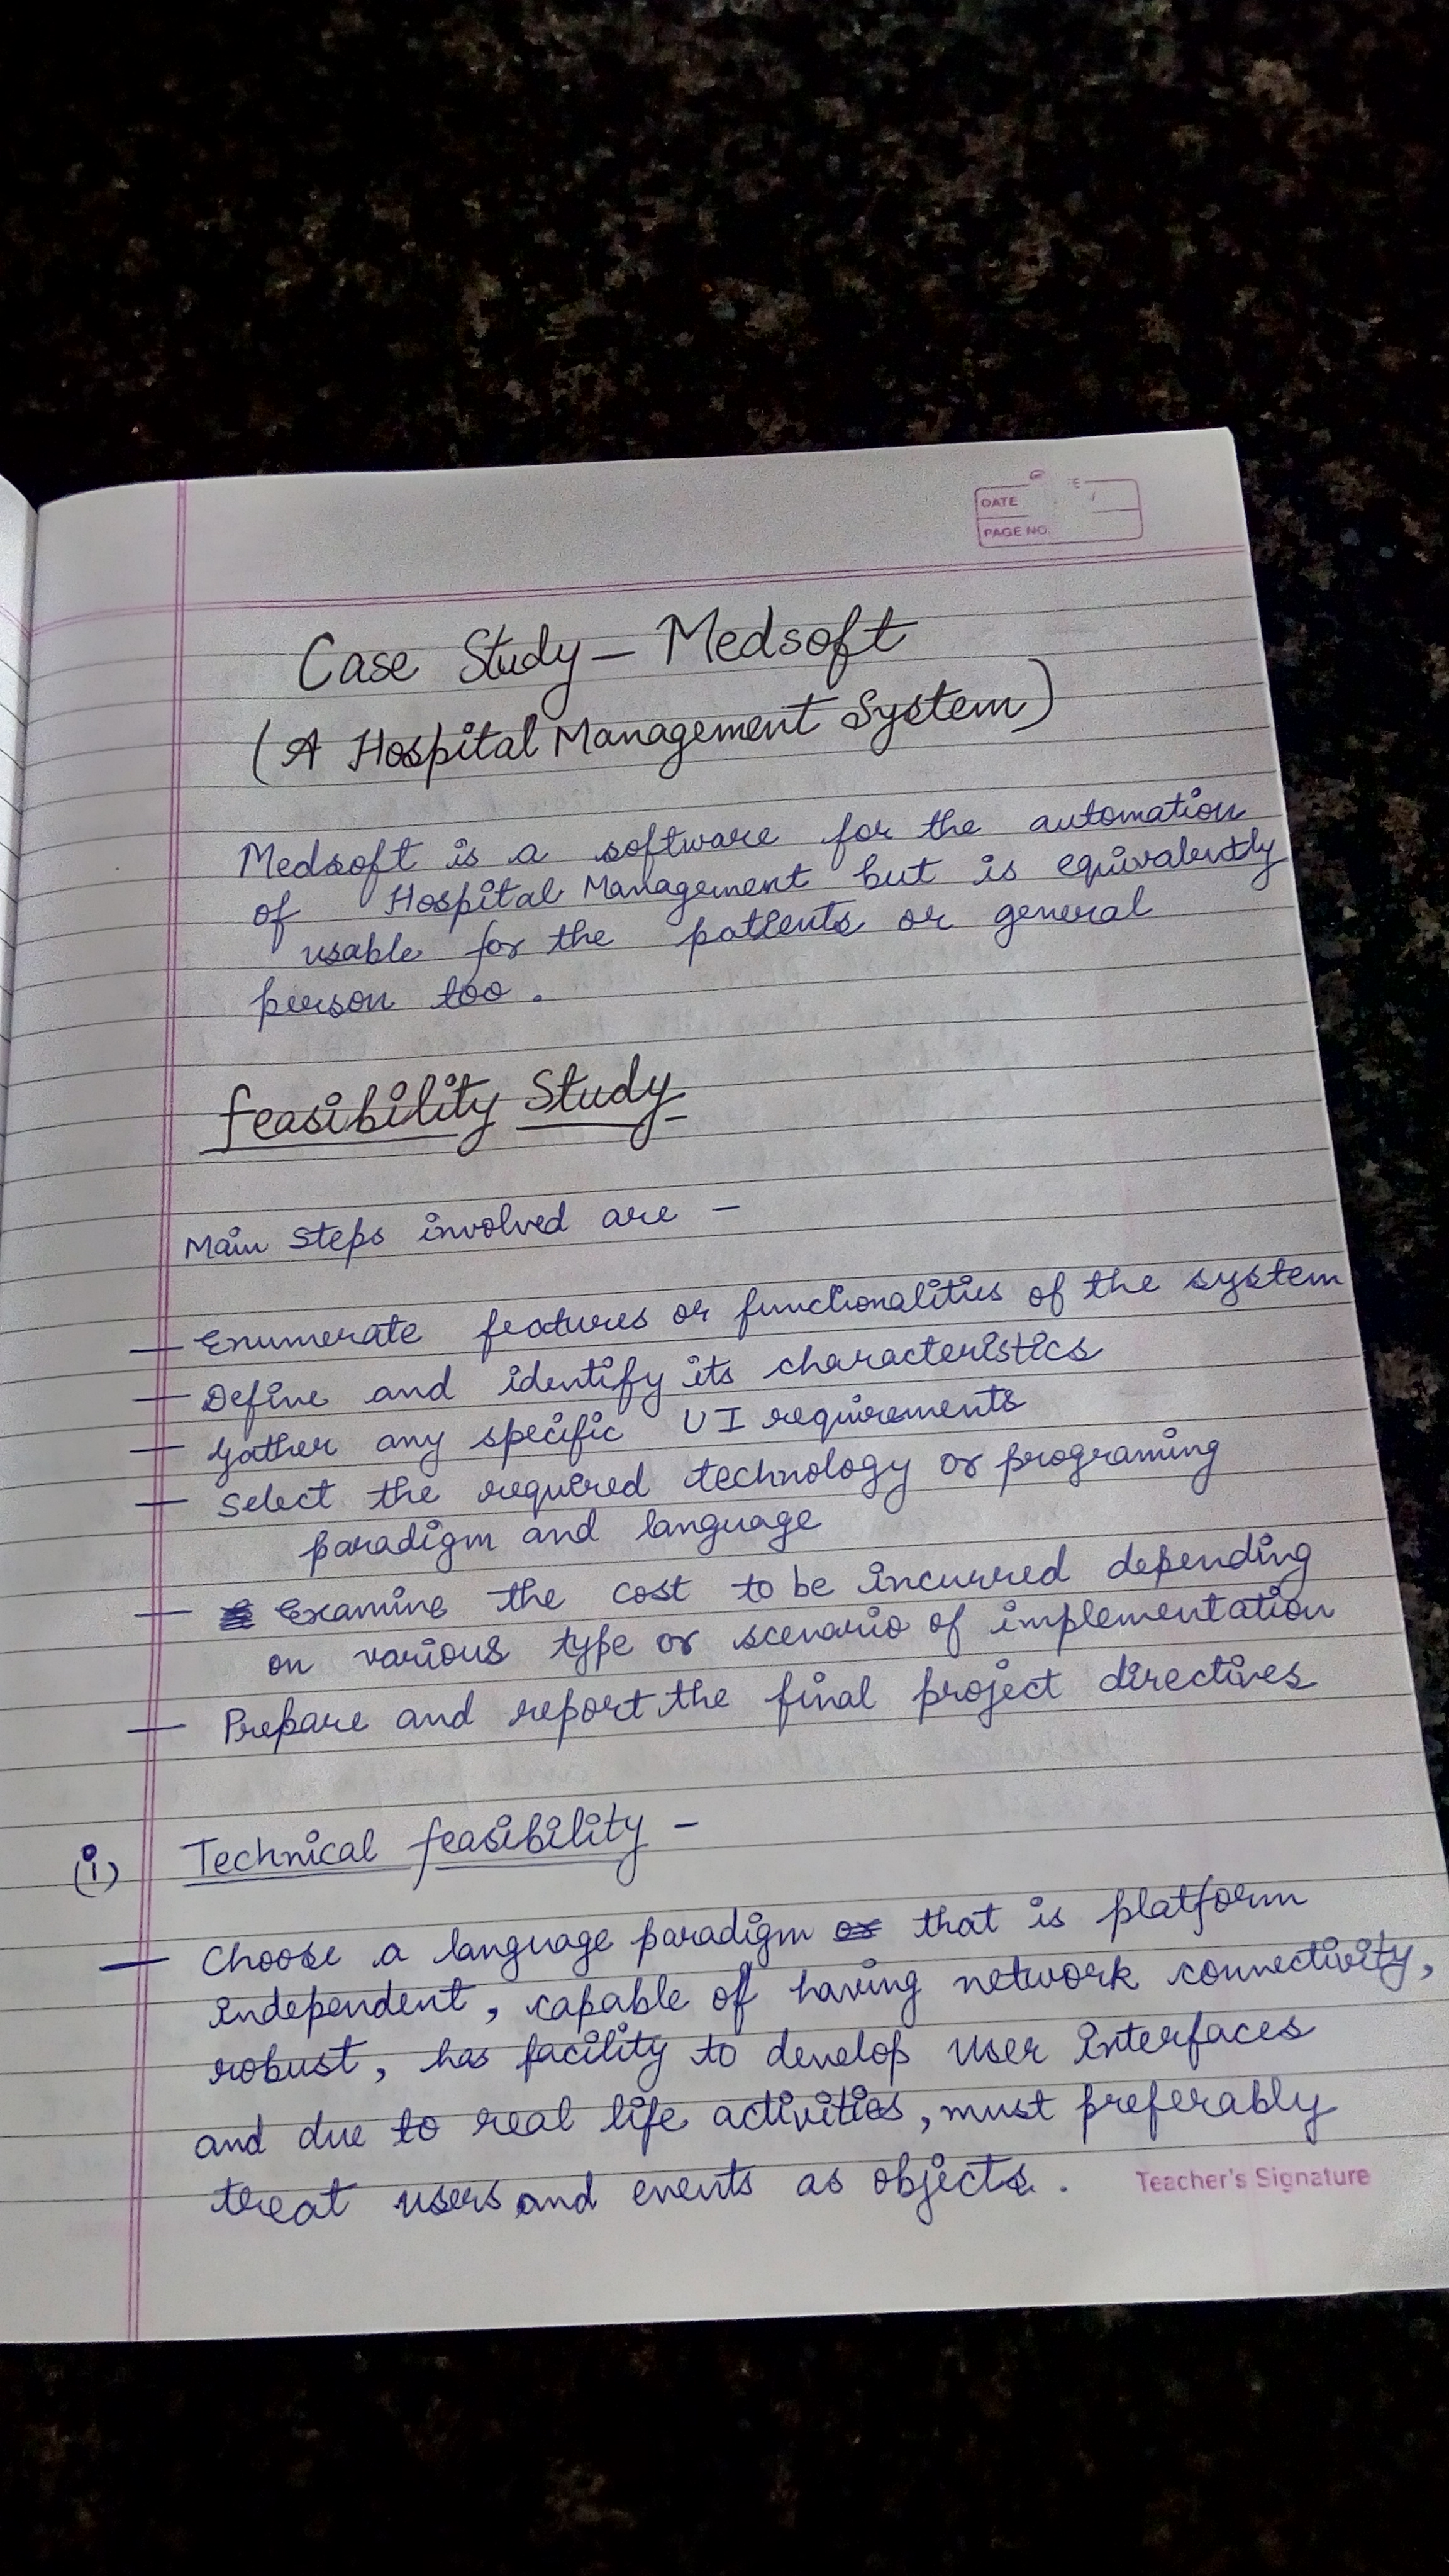 DATE
PAGE NO.
Case Study - Medsoft
(A Hospital Management System)
Medsoft is a software for the automation
of Hospital Management but is equivalently
usable for the patients or general
person too.
Feasibility Study
Main Steps involved are -
- Enumerate features or functionalities of the system
- Define and identify its characteristics
- Gather any specific UI requirements
- Select the required technology or programing
paradigm and language
- Examine the cost to be incurred depending
on various type or scenario of implementation
- Prepare and report the final project directives
(i) Technical feasibility -
- Choose a language paradigm or that is platform
independent, capable of having network connectivity,
robust, has facility to develop user interfaces
and due to real life activities, must preferably
treat users and events as objects.
Teacher's Signature